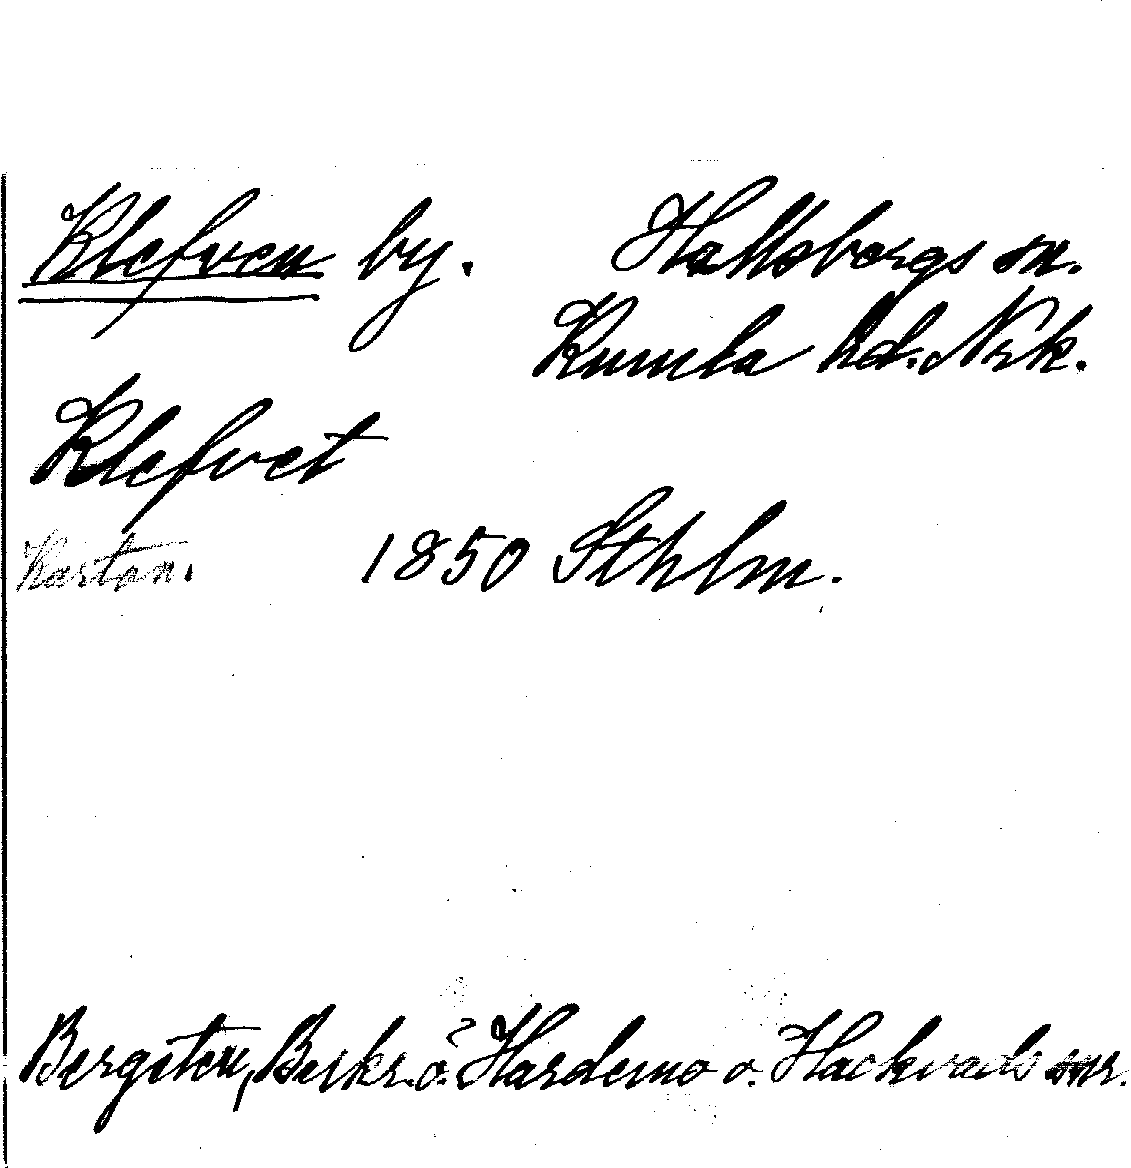 Klefven by. Hallsbergs sn.
Kumla hd. Nrk.
Klefvet
Kartan. 1850 Sthlm.
Bergsten, Beskr. ö. Hardemo o. Hackvads snr.